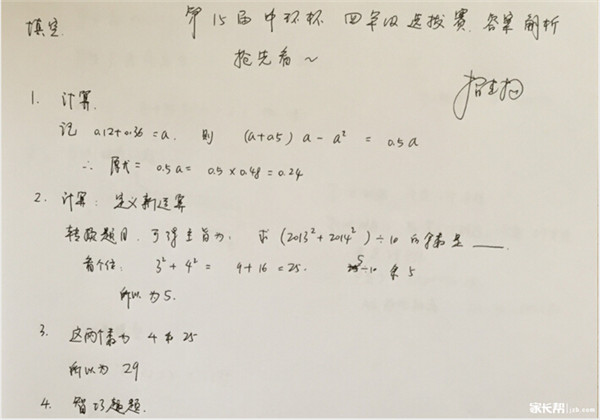 填空
第15届中环杯 四年级选拔赛 答案解析
抢先看~
1. 计算
记 0.12+0.36=a. 则 (a+0.5)a-a²=0.5a
∴ 原式=0.5a=0.5×0.48=0.24
2. 计算:定义新运算
转政题目,可得主旨为:求(2013²+2014²)÷10的余数是____.
看个位:3²+4²=9+16=25. 5÷10余5
所以为5.
3. 这两个数为4和25
所以为29
4. 智巧趣题.
家长帮 jzb.com